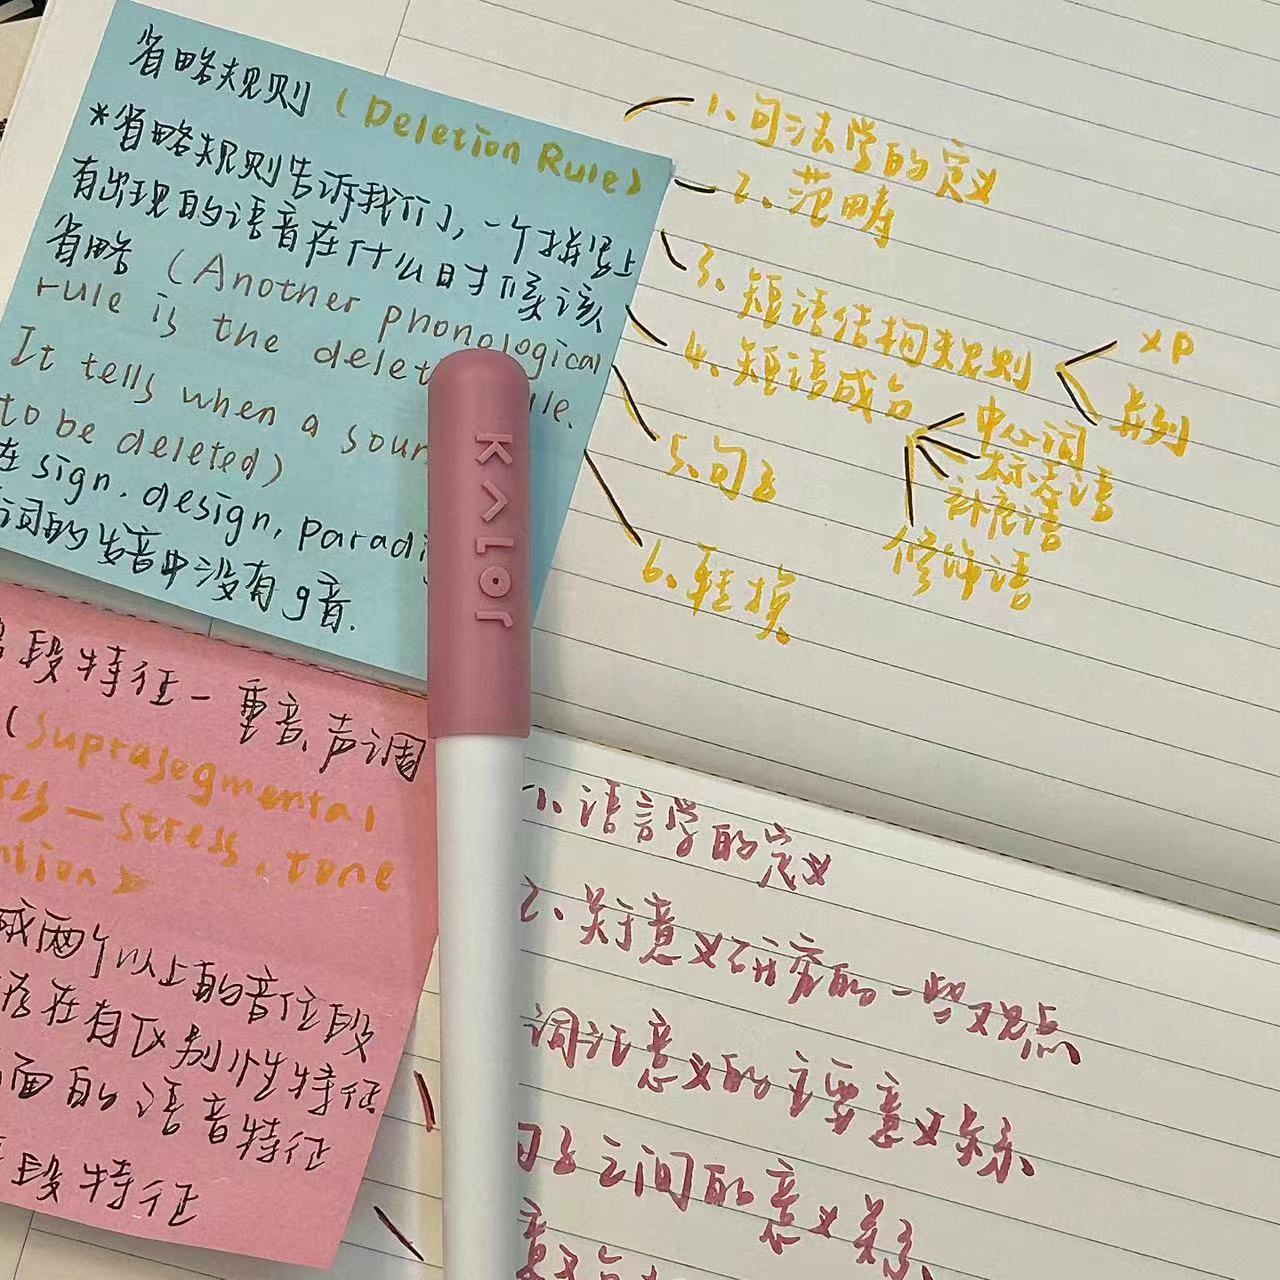 省略规则(Deletion Rule)
*省略规则告诉我们,一个拼写上
有出现的语音在什么时候该
省略(Another phonological
rule is the delet
It tells when a soun
to be deleted)
在sign.design,parad
词的发音中没有g音.
段特征-重音、声调
(Suprasegmental
-stress,tone
两个以上的音位段
在有区别性特征
面的语音特征
段特征
KALOr
1、句法学的定义
2、范畴
3、短语结构规则
XP
并列
4、短语成分
中心词
标志语
补足语
修饰语
5、句子
6、转换
1、语言学的定义
2、关于意义研究的一些观点
词汇意义的主要意义关系
句子之间的意义关系